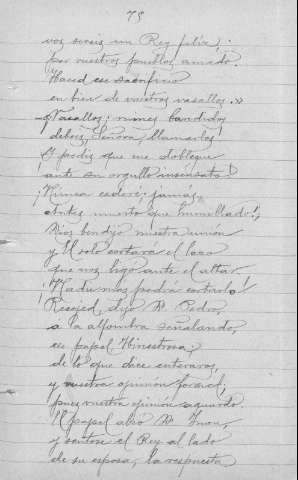 75
vos seréis un Rey feliz,
por vuestros pueblos amado.
Haced ese sacrificio
en bien de vuestros vasallos.»
—¡Vasallos; nunca bandidos
debéis, Señora, llamarlos!
¡Y pedís que me doblegue
ante su orgullo insensato!
¡Nunca cederé; jamás,
antes muerto que humillado!
Dios bendijo nuestra unión
y El solo cortará el lazo
que nos ligó ante el altar.
¡Nadie más podrá cortarlo!
Recojed, dijo D. Pedro,
a la alfombra señalando,
ese papel Hinestrosa;
de lo que dice enteraros,
y vuestra opinión formad,
pues vuestra opinión aguardo.
El papel alzó D. Juan,
y sentose el Rey al lado
de su esposa, la respuesta